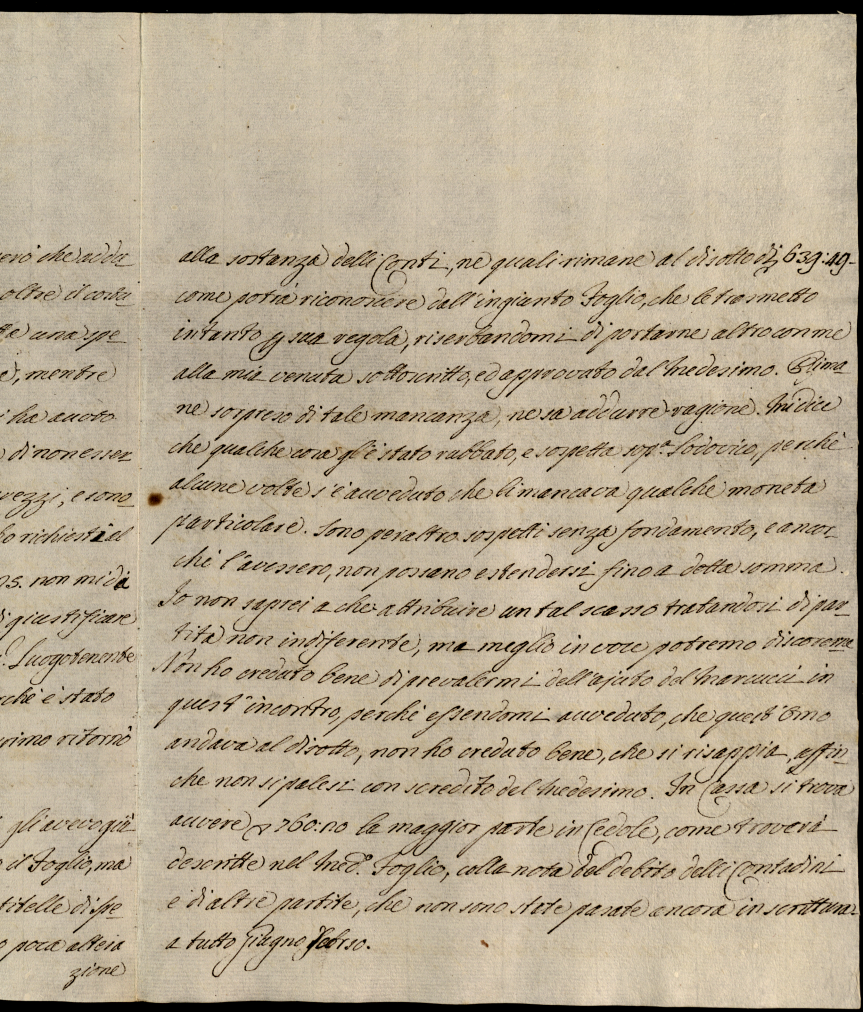 erò che adda
oltre il costa
una spe
mentre
i ha avuto
di non esser
vezzi, e sono
richiesti al
non mi dà
giustificare
Luogotenente
rchè è stato
primo ritorno
gli avevo già
il Foglio, ma
titelle di spe
poca altera
zione
alla sostanza delli Conti, ne quali rimane al disotto di 639:49-
come potrà riconoscere dall'ingianto Foglio, che le trasmetto
intanto p sua regola, riserbandomi di portarne altro con me
alla mia venuta sottoscritto, ed approvato dal Medesimo. Rima
ne sorpreso di tale mancanza, ne sa addurre ragione. Mi dice
che qualche cosa gl'è stato rubbato, e sospetta sopa Lodovico, perchè
alcune volte s'è avveduto che li mancava qualche moneta
particolare. Sono peraltro sospetti senza fondamento, e ancor
chè l'avessero, non possano estendersi fino a detta somma.
Io non saprei a che attribuire un tal scasso tratandosi di par
tità non indiferente, ma meglio in voce potremo discorrerne
Non ho creduto bene di prevalermi dell'ajuto del Marcucci in
quest'incontro, perchè essendomi avveduto, che quest'Omo
andava al disotto, non ho creduto bene, che si risappia, affin
che non si palesi con scredito del Medesimo. In Cassa si trova
avvere 760:no la maggior parte in Cedole, come troverà
descritte nel Medo. Foglio, colla nota del debito delli Contadini
e di altre partite, che non sono state pasate ancora in scrittura
a tutto Giugno scorso.